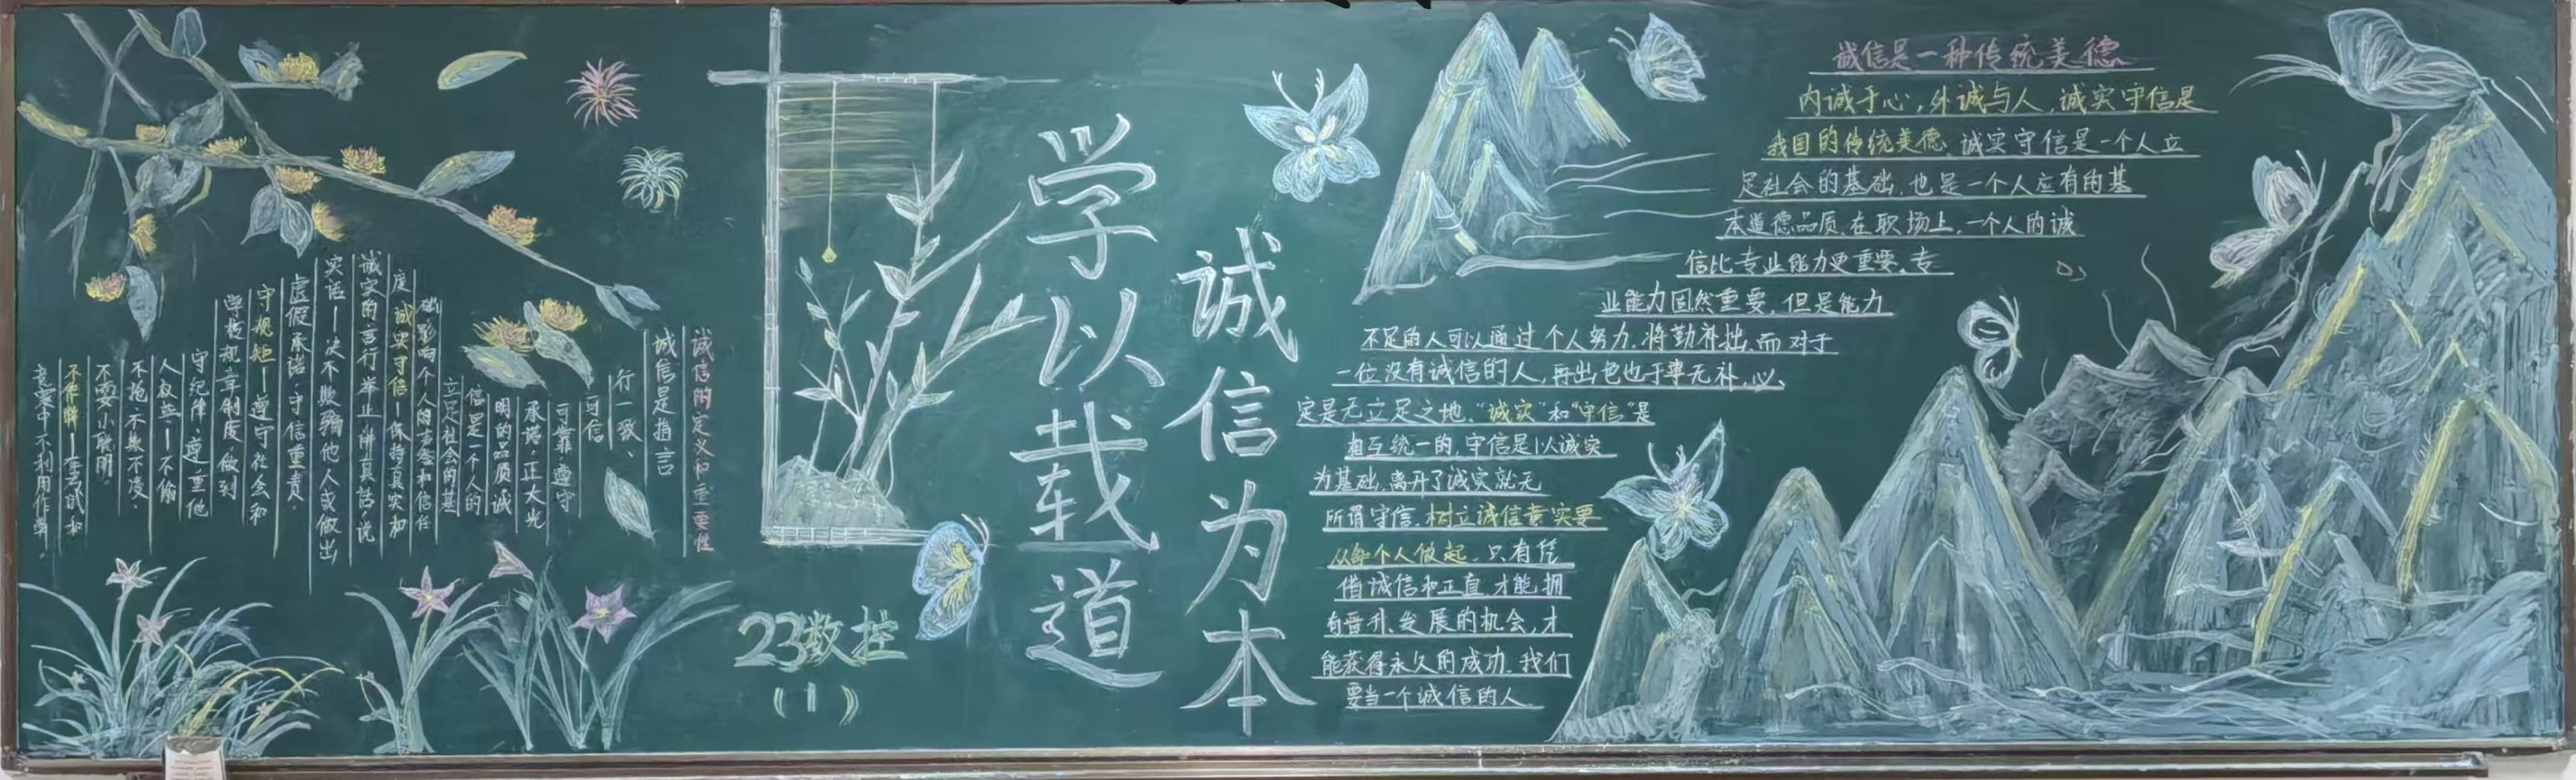 诚信的定义和重要性
诚信是指言
行一致、
可信
可靠,遵守
承诺,正大光
明的品质诚
信是一个人的
立足社会的基
础影响个人的声誉和信任
度 诚实守信—保持真实和
诚实的言行举止—讲真话,说
实话—决不欺骗他人或做出
虚假承诺,守信重责。
守规矩—遵守社会和
学校规章制度,做到
守纪律,遵重他
人权益—不偷
不抢,不欺不凌、
不耍小聪明。
不作弊—在考试和
竞赛中不利用作弊。
学以载道
诚信为本
23数控
(1)
诚信是一种传统美德
内诚于心,外诚与人,诚实守信是
我国的传统美德、诚实守信是一个人立
足社会的基础,也是一个人应有的基
本道德品质,在职场上,一个人的诚
信比专业能力更重要,专
业能力固然重要,但是能力
不足的人可以通过个人努力,将勤补拙,而对于
一位没有诚信的人,再出色也于事无补,必
定是无立足之地、“诚实”和“守信”是
相互统一的,守信是以诚实
为基础,离开了诚实就无
所谓守信,树立诚信意实要
从每个人做起、只有凭
借诚信和正直,才能拥
有晋升、发展的机会,才
能获得永久的成功,我们
要当一个诚信的人、